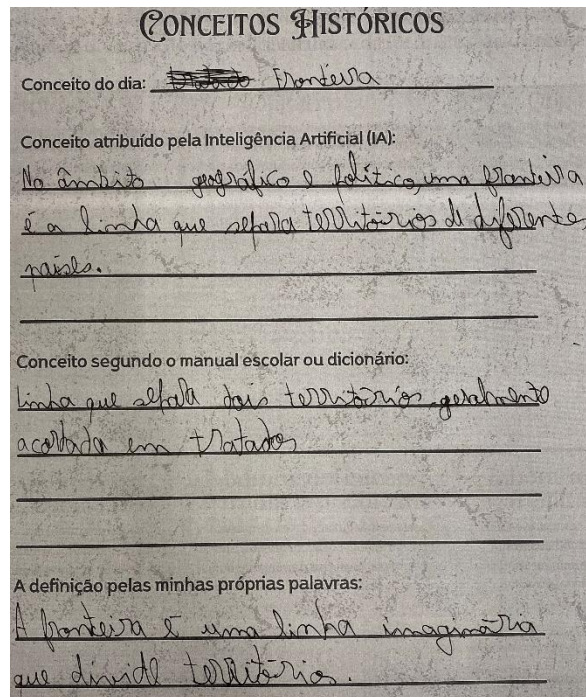 CONCEITOS HISTÓRICOS
Conceito do dia: Fronteira
Conceito atribuído pela Inteligência Artificial (IA):
No âmbito geográfico e político uma fronteira
é a linha que separa territórios de diferentes
países.
Conceito segundo o manual escolar ou dicionário:
Linha que separa dois territórios geralmente
acordada em tratados
A definição pelas minhas próprias palavras:
A fronteira é uma linha imaginária
que divide territórios.